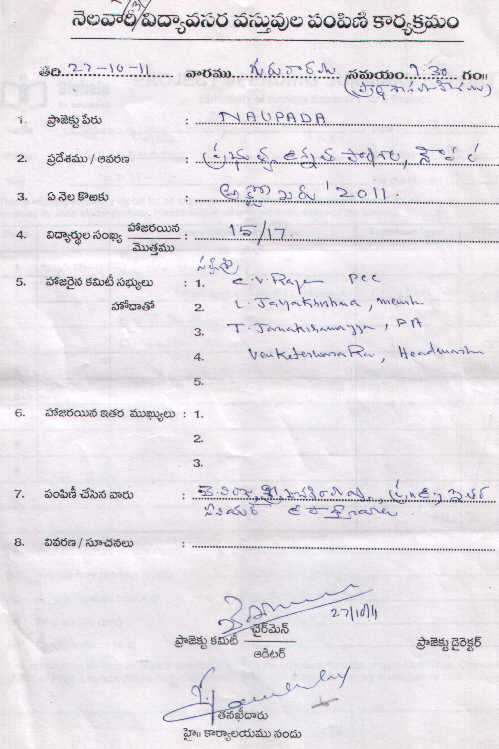 నెలవారీ విద్యావసర వస్తువుల పంపిణీ కార్యక్రమం
తేది..27-10-11 వారము...గురువారము సమయం..9.30 గం॥
1. ప్రాజెక్టు పేరు : NAUPADA
2. ప్రదేశము / ఆవరణ : ప్రభుత్వ ఉన్నత
3. ఏ నెల కొఱకు : అక్టోబరు '2011.
4. విద్యార్థుల సంఖ్య హాజరయిన మొత్తము : 15/17
5. హాజరైన కమిటీ సభ్యులు : 1. C.V. Raju PCC
హోదాతో 2. L. Jayakrishna,
3. T. Janakiramayya,
4. Venkateswara Rao, Headmaster
5.
6. హాజరయిన ఇతర ముఖ్యులు : 1.
2.
3.
7. పంపిణీ చేసిన వారు :
8. వివరణ / సూచనలు :
27/10/11
ప్రాజెక్టు కమిటీ ఛైర్‌మెన్ ప్రాజెక్టు డైరెక్టర్
ఆడిటర్
తనఖీదారు
హై॥ కార్యాలయము నందు